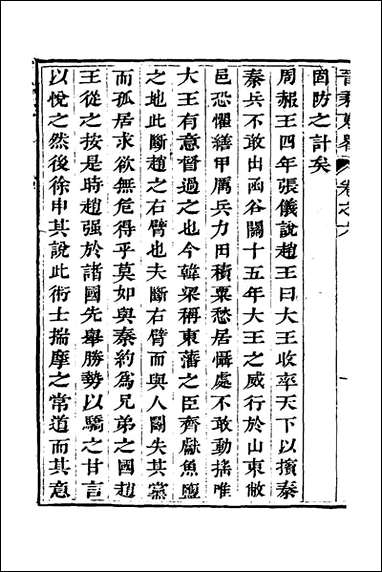 晉乘蒐畧 卷之六
固防之計矣
周赧王四年張儀說趙王曰大王收率天下以擯秦
秦兵不敢出函谷關十五年大王之威行於山東敝
邑恐懼繕甲厲兵力田積粟愁居懾處不敢動搖唯
大王有意督過之也今韓梁稱東藩之臣齊獻魚鹽
之地此斷趙之右臂也夫斷右臂而與人鬭失其黨
而孤居求欲無危得乎莫如與秦約爲兄弟之國趙
王從之按是時趙强於諸國先舉勝勢以驕之甘言
以悅之然後徐申其說此術士揣摩之常道而其意